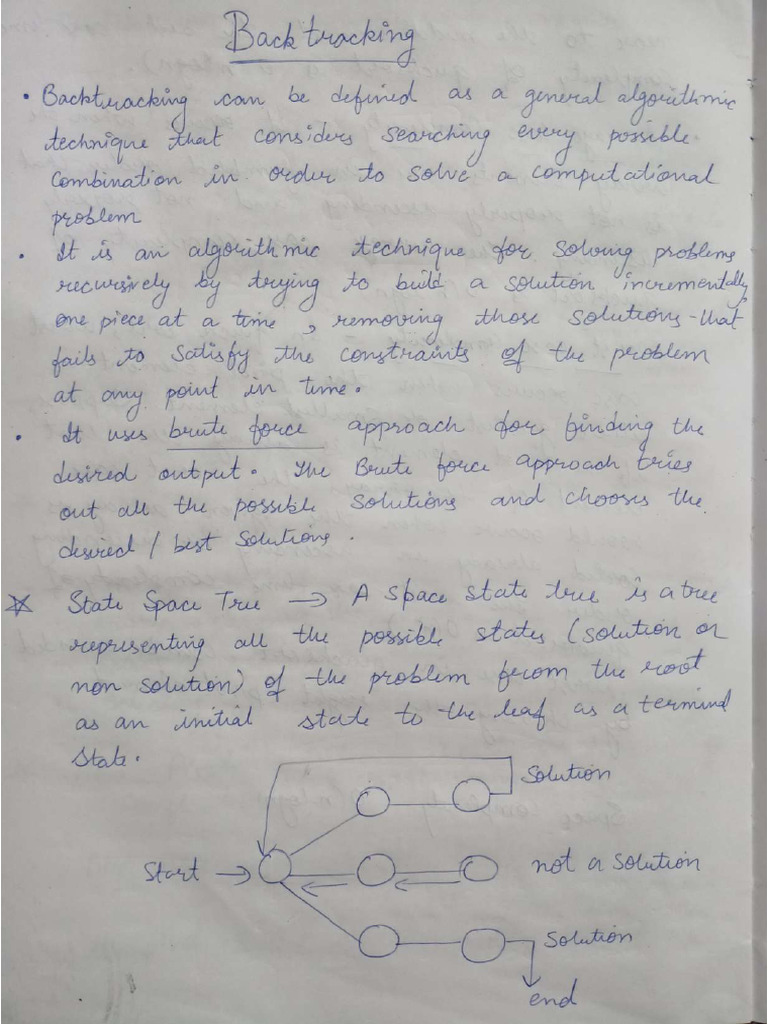 Backtracking
• Backtracking can be defined as a general algorithmic
technique that considers searching every possible
combination in order to solve a computational
problem
• It is an algorithmic technique for solving problems
recursively by trying to build a solution incrementally,
one piece at a time, removing those solutions that
fails to satisfy the constraints of the problem
at any point in time.
• It uses brute force approach for finding the
desired output. The Brute force approach tries
out all the possible solutions and chooses the
desired / best solutions.
State Space Tree → A space state tree is a tree
representing all the possible states (solution or
non solution) of the problem from the root
as an initial state to the leaf as a terminal
state.
Solution
Start → not a solution
Solution
end